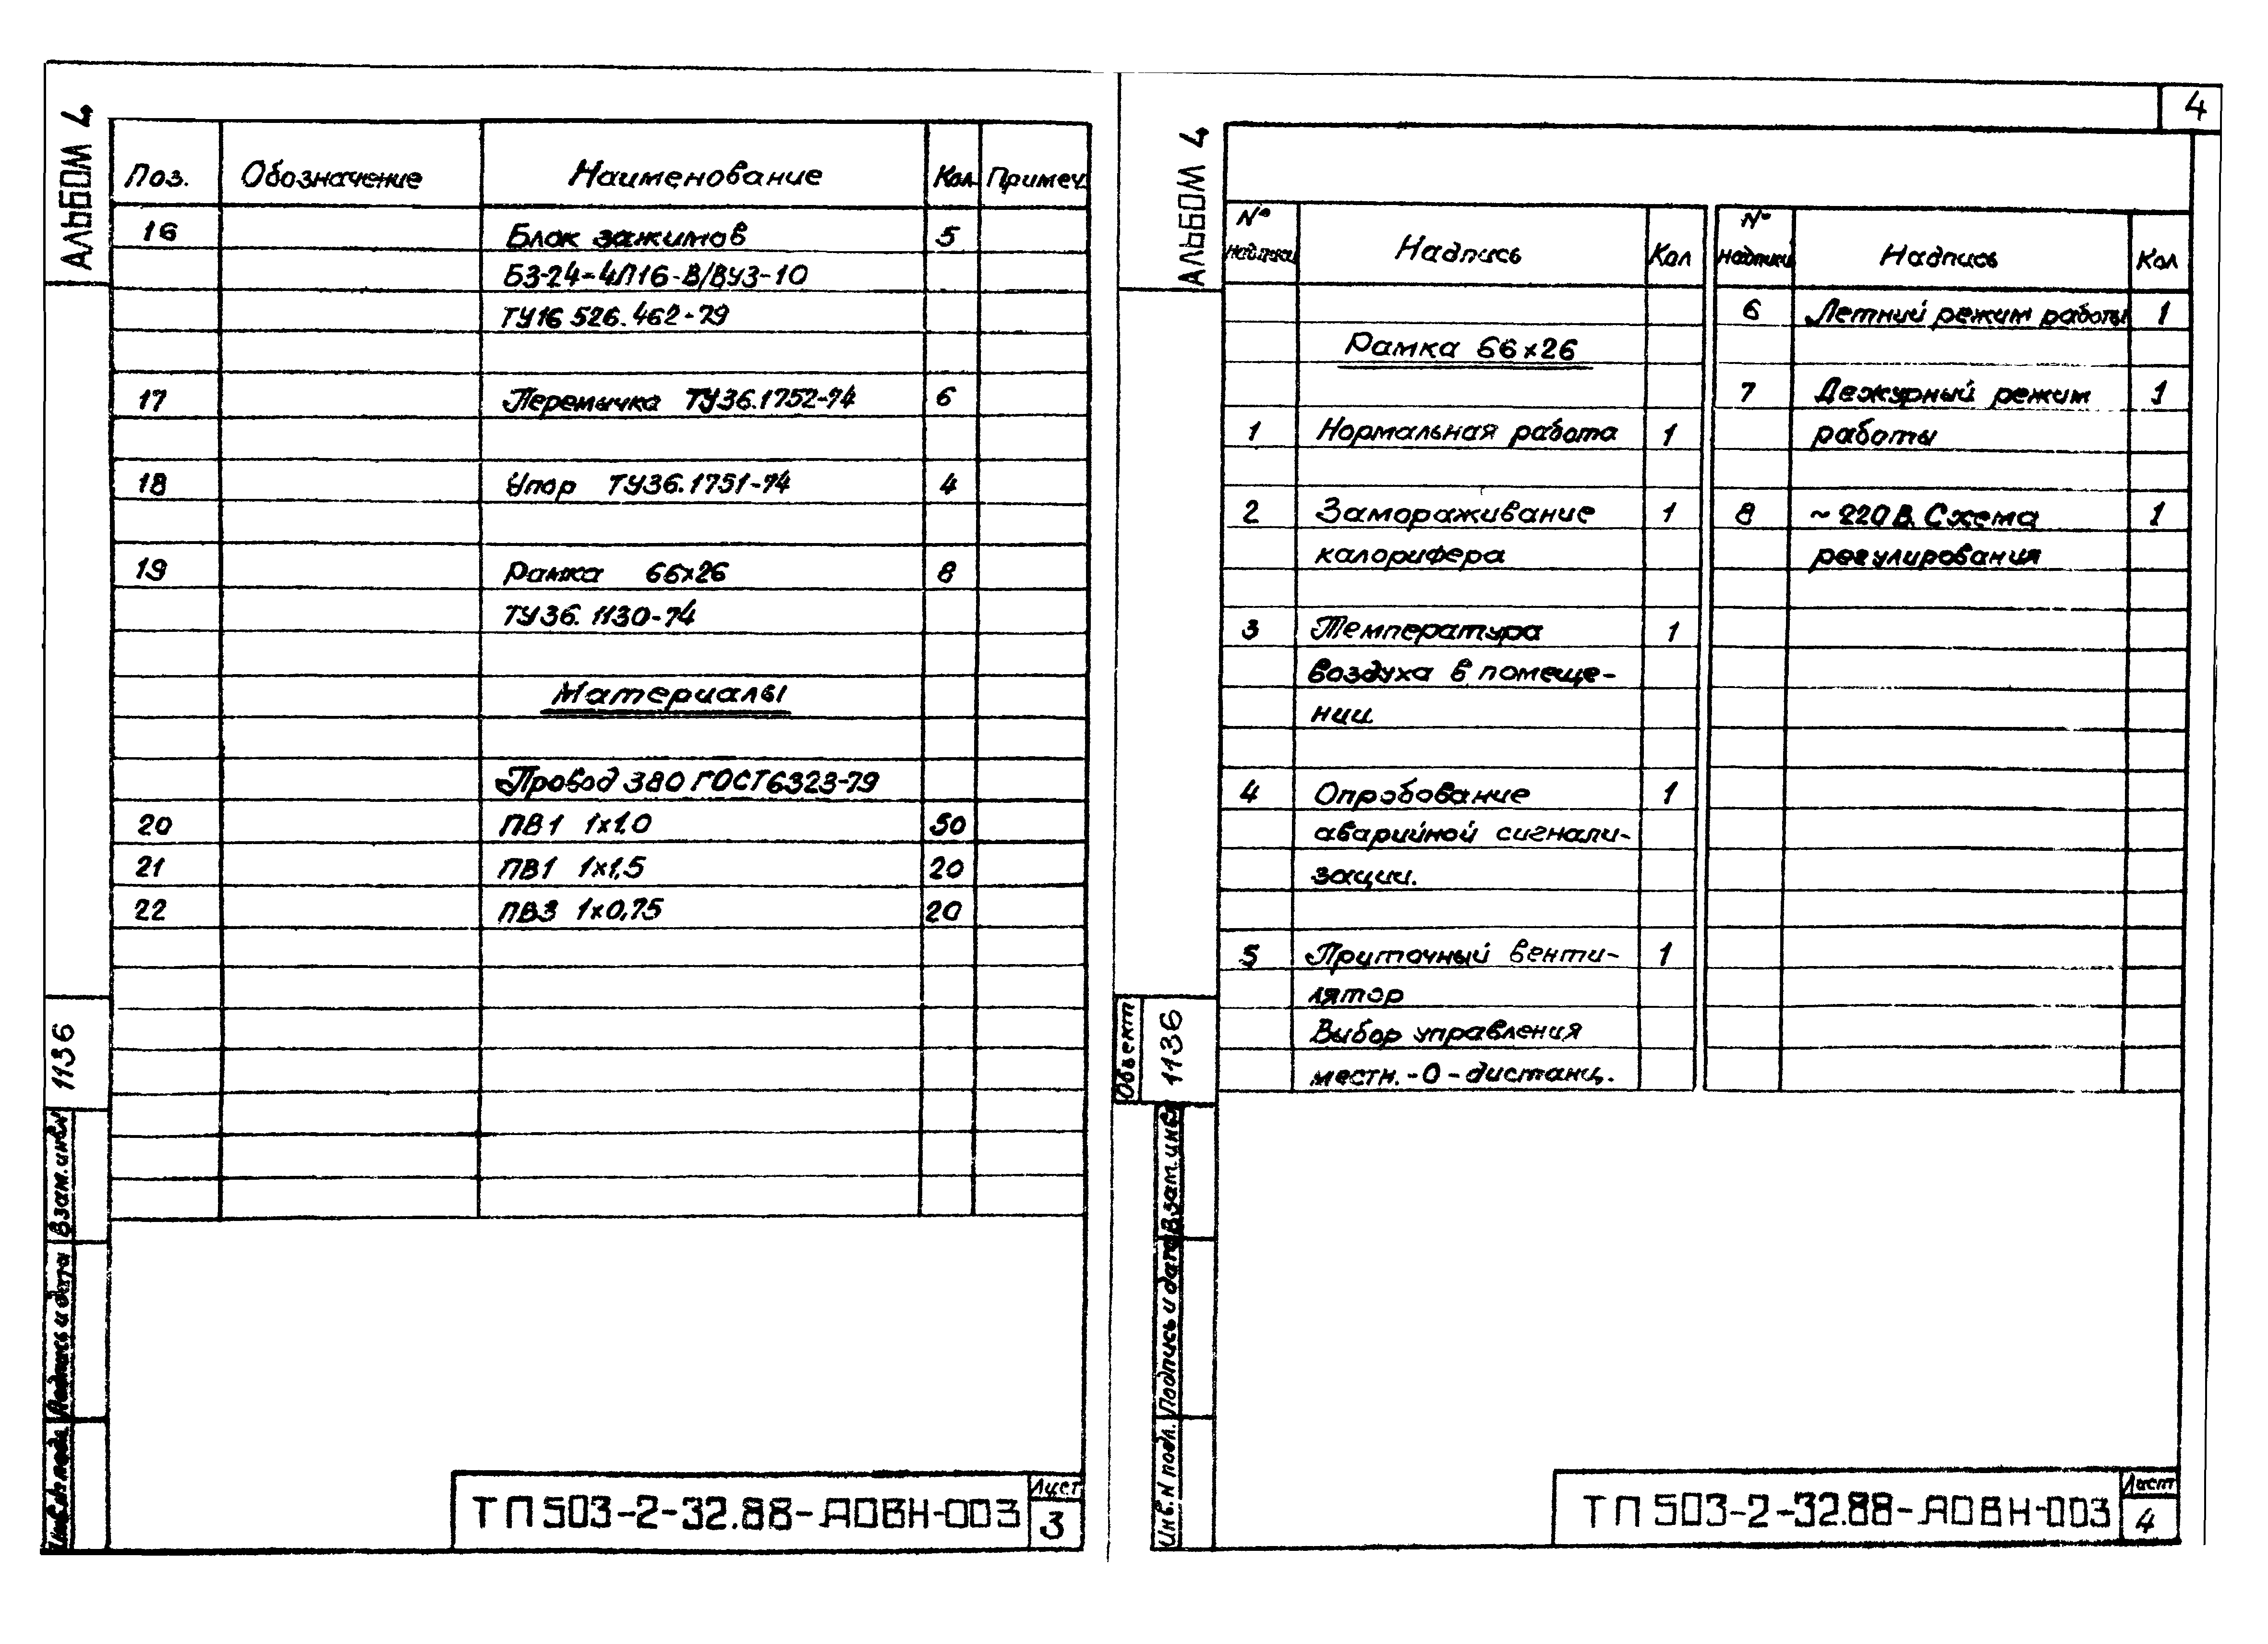 АЛЬБОМ 4
Поз. Обозначение Наименование Кол Примеч.
16 Блок зажимов 5
БЗ-24-4П16-В/ВУЗ-10
ТУ16 526.462-79
17 Перемычка ТУ36.1752-74 6
18 Упор ТУ36.1751-74 4
19 Рамка 66х26 8
ТУ36.1130-74
Материалы
Провод 380 ГОСТ6323-79
20 ПВ1 1х1,0 50
21 ПВ1 1х1,5 20
22 ПВ3 1х0,75 20
1136
Взам.инв.N
Подпись и дата
Инв.N подл.
ТП 503-2-32.88-АОВН-003
Лист
3
4
АЛЬБОМ 4
№ надписи Надпись Кол
Рамка 66х26
1 Нормальная работа 1
2 Замораживание 1
калорифера
3 Температура 1
воздуха в помеще-
нии
4 Опробование 1
аварийной сигнали-
зации.
5 Приточный венти- 1
лятор
Выбор управления
местн.-О-дистанц.
№ надписи Надпись Кол
6 Летний режим работы 1
7 Дежурный режим 1
работы
8 ~220В. Схема 1
регулирования
Объект
1136
Взам.инв
Подпись и дата
Инв.N подл.
ТП 503-2-32.88-АОВН-003
Лист
4